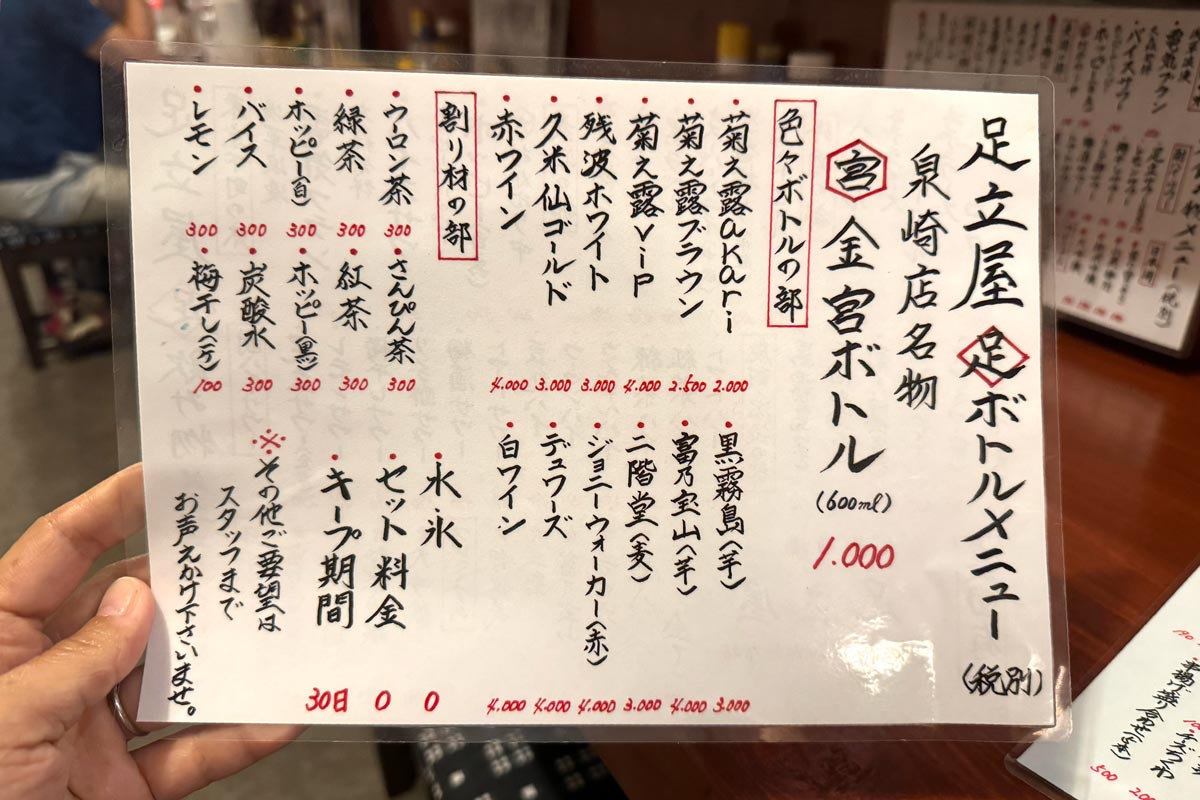 足立屋 足 ボトルメニュー (税別)
泉崎店名物
宮 金宮ボトル (600ml) 1.000
色々ボトルの部
・菊之露akari 2.000
・黒霧島(芋) 3.000
・菊之露ブラウン 2.500
・富乃宝山(芋) 4.000
・菊之露ViP 4.000
・二階堂(麦) 3.000
・残波ホワイト 3.000
・ジョニーウォーカー(赤) 4.000
・久米仙ゴールド 3.000
・デュワーズ 4.000
・赤ワイン 4.000
・白ワイン 4.000
割り材の部
・ウロン茶 300
・さんぴん茶 300
・緑茶 300
・紅茶 300
・ホッピー(白) 300
・ホッピー(黒) 300
・バイス 300
・炭酸水 300
・レモン 300
・梅干し(1ヶ) 100
・水・氷 0
・セット料金 0
・キープ期間 30日
※その他ご要望は
スタッフまで
お声えかけ下さいませ。